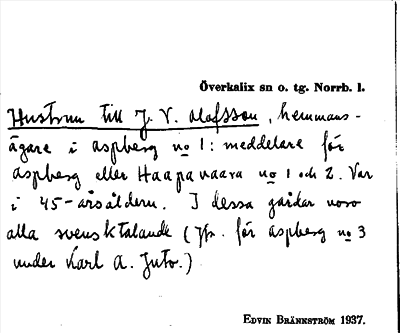 Överkalix sn o. tg. Norrb. l.
Hustrun till J. V. Olofsson, hemmans-
ägare i Aspberg no 1: meddelare för
Aspberg eller Haapavaara no 1 och 2. Var
i 45-årsåldern. I dessa gårdar voro
alla svensktalande (Jfr. för Aspberg no 3
under Karl A. Juto.)
EDVIN BRÄNNSTRÖM 1937.